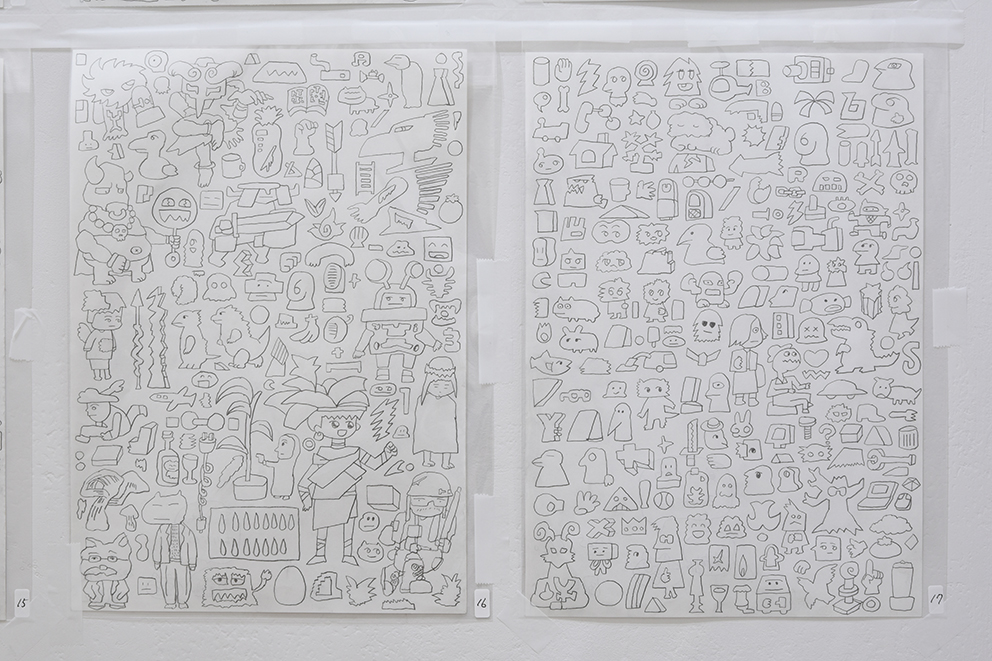 15
16
17
B